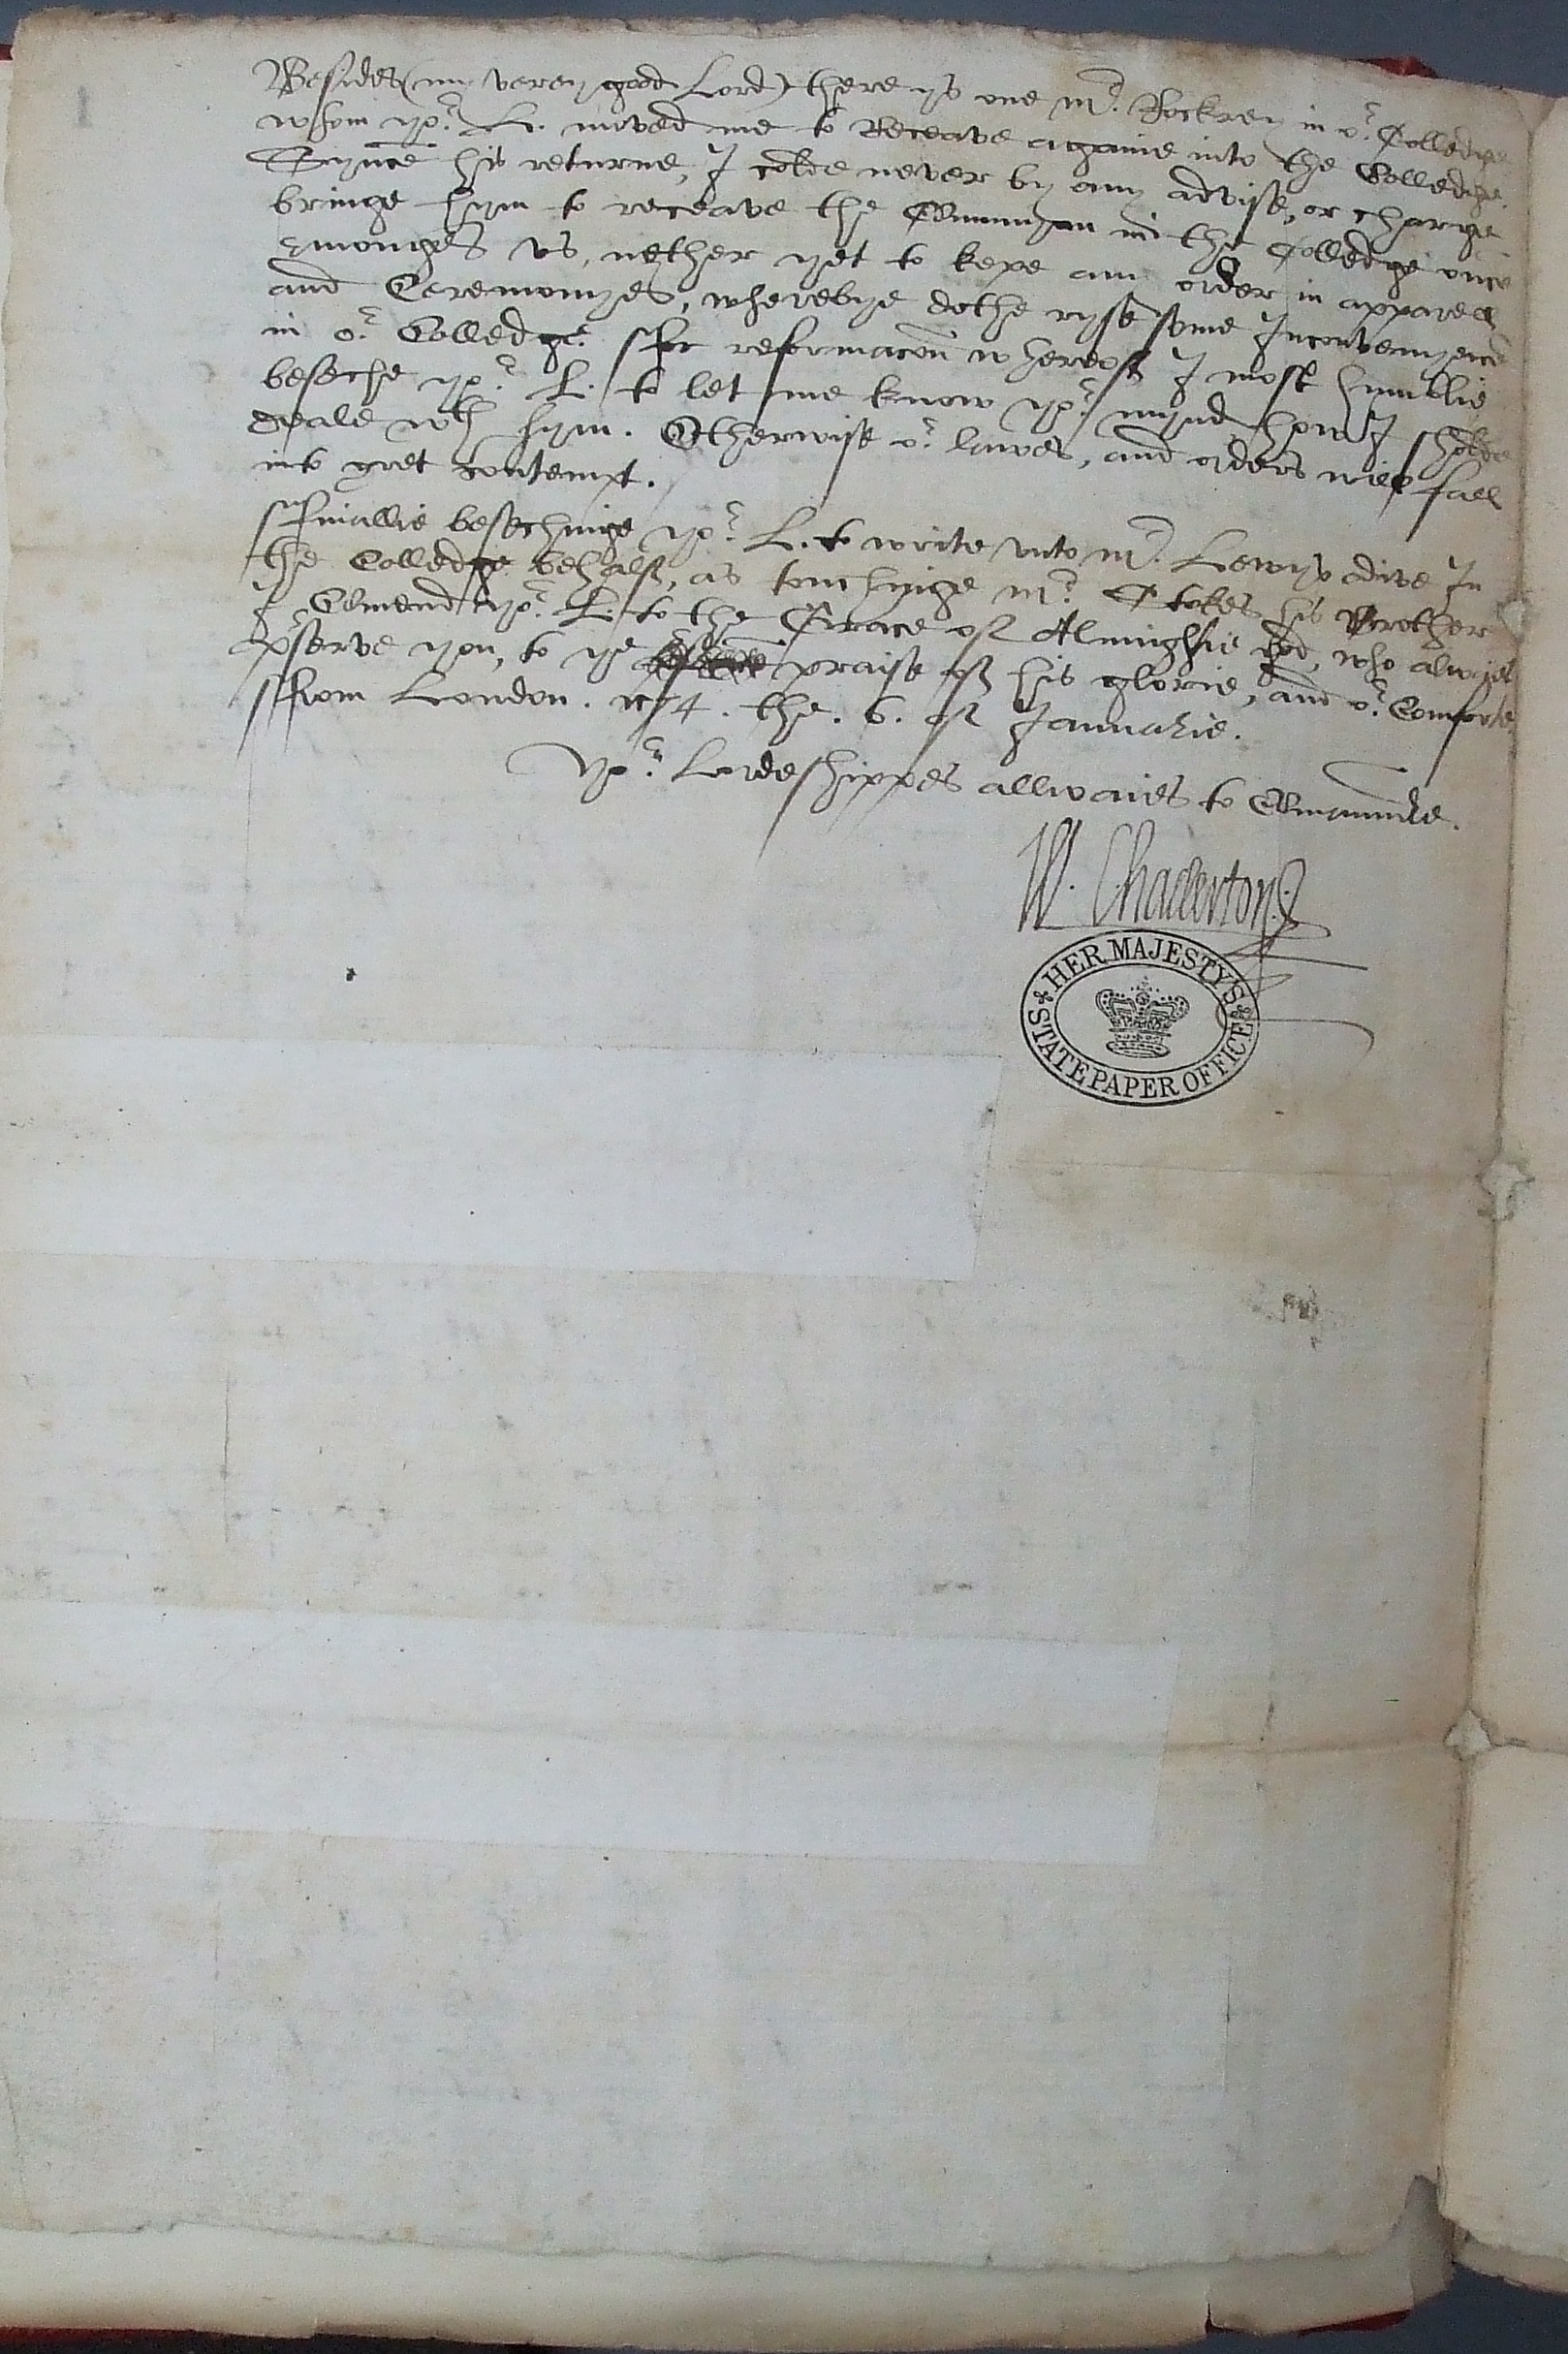 Besides (my verey good Lord) there ys one Mr. Rockrey in or. Colledge
whom yor. L. moved me to Receave againe into the Colledge.
Synce his returne, I colde never by any advise, or charge
bringe hym to receave the Comunyan in the Colledge once
emonges us, nether yet to kepe any order in apparell
and Ceremonyes, wherebye dothe ryse some Inconvenyence
in or. Colledge. ffor reformacon whereof I most humblie
beseche yor. L. to let me know yor. mynd how I sholde
deale wth hym. Otherwise or. lawes, and orders will fall
into gret contempt.
ffinallie beseching yor. L. to write unto Mr. Lewys dive In
the Colledge behalf, as towchynge Mr. Stokes his Brother
I Comend yor. L. to the Grace of Almightie god, who alwaies
pserve you, to ye praise of his glorie, and or. Comforte.
ffrom London. 1574. the. 6. of Januarie.
Yor. Lordeshippes allwaies to Comaunde.
W. Chaderton.
HER MAJESTY'S
STATE PAPER OFFICE